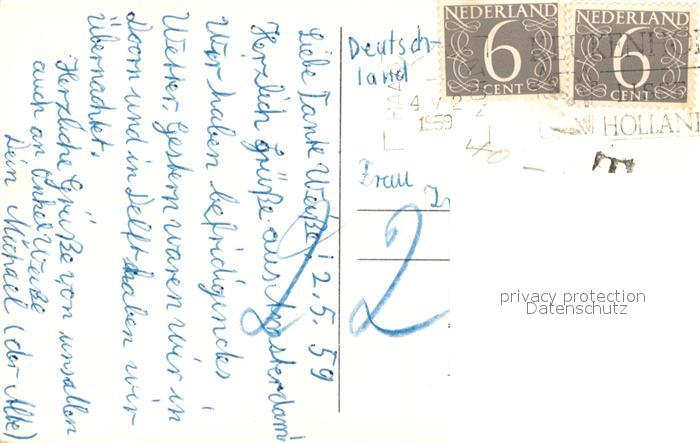 Liebe Tante Weiße! 2.5.59
Herzlich Grüße aus Amsterdam!
Wir haben befridigindes
Wetter. Gestern waren wir in
Doorn und in Delft haben wir
übernachtet.
Herzliche Grüße von uns allen
auch an Onkel Weiße
Dein Michael (der Alte)
Deutsch-
land
Frau
NEDERLAND
6
CENT
NEDERLAND
6
CENT
1959
HOLLAN
40 -
2
privacy protection
Datenschutz